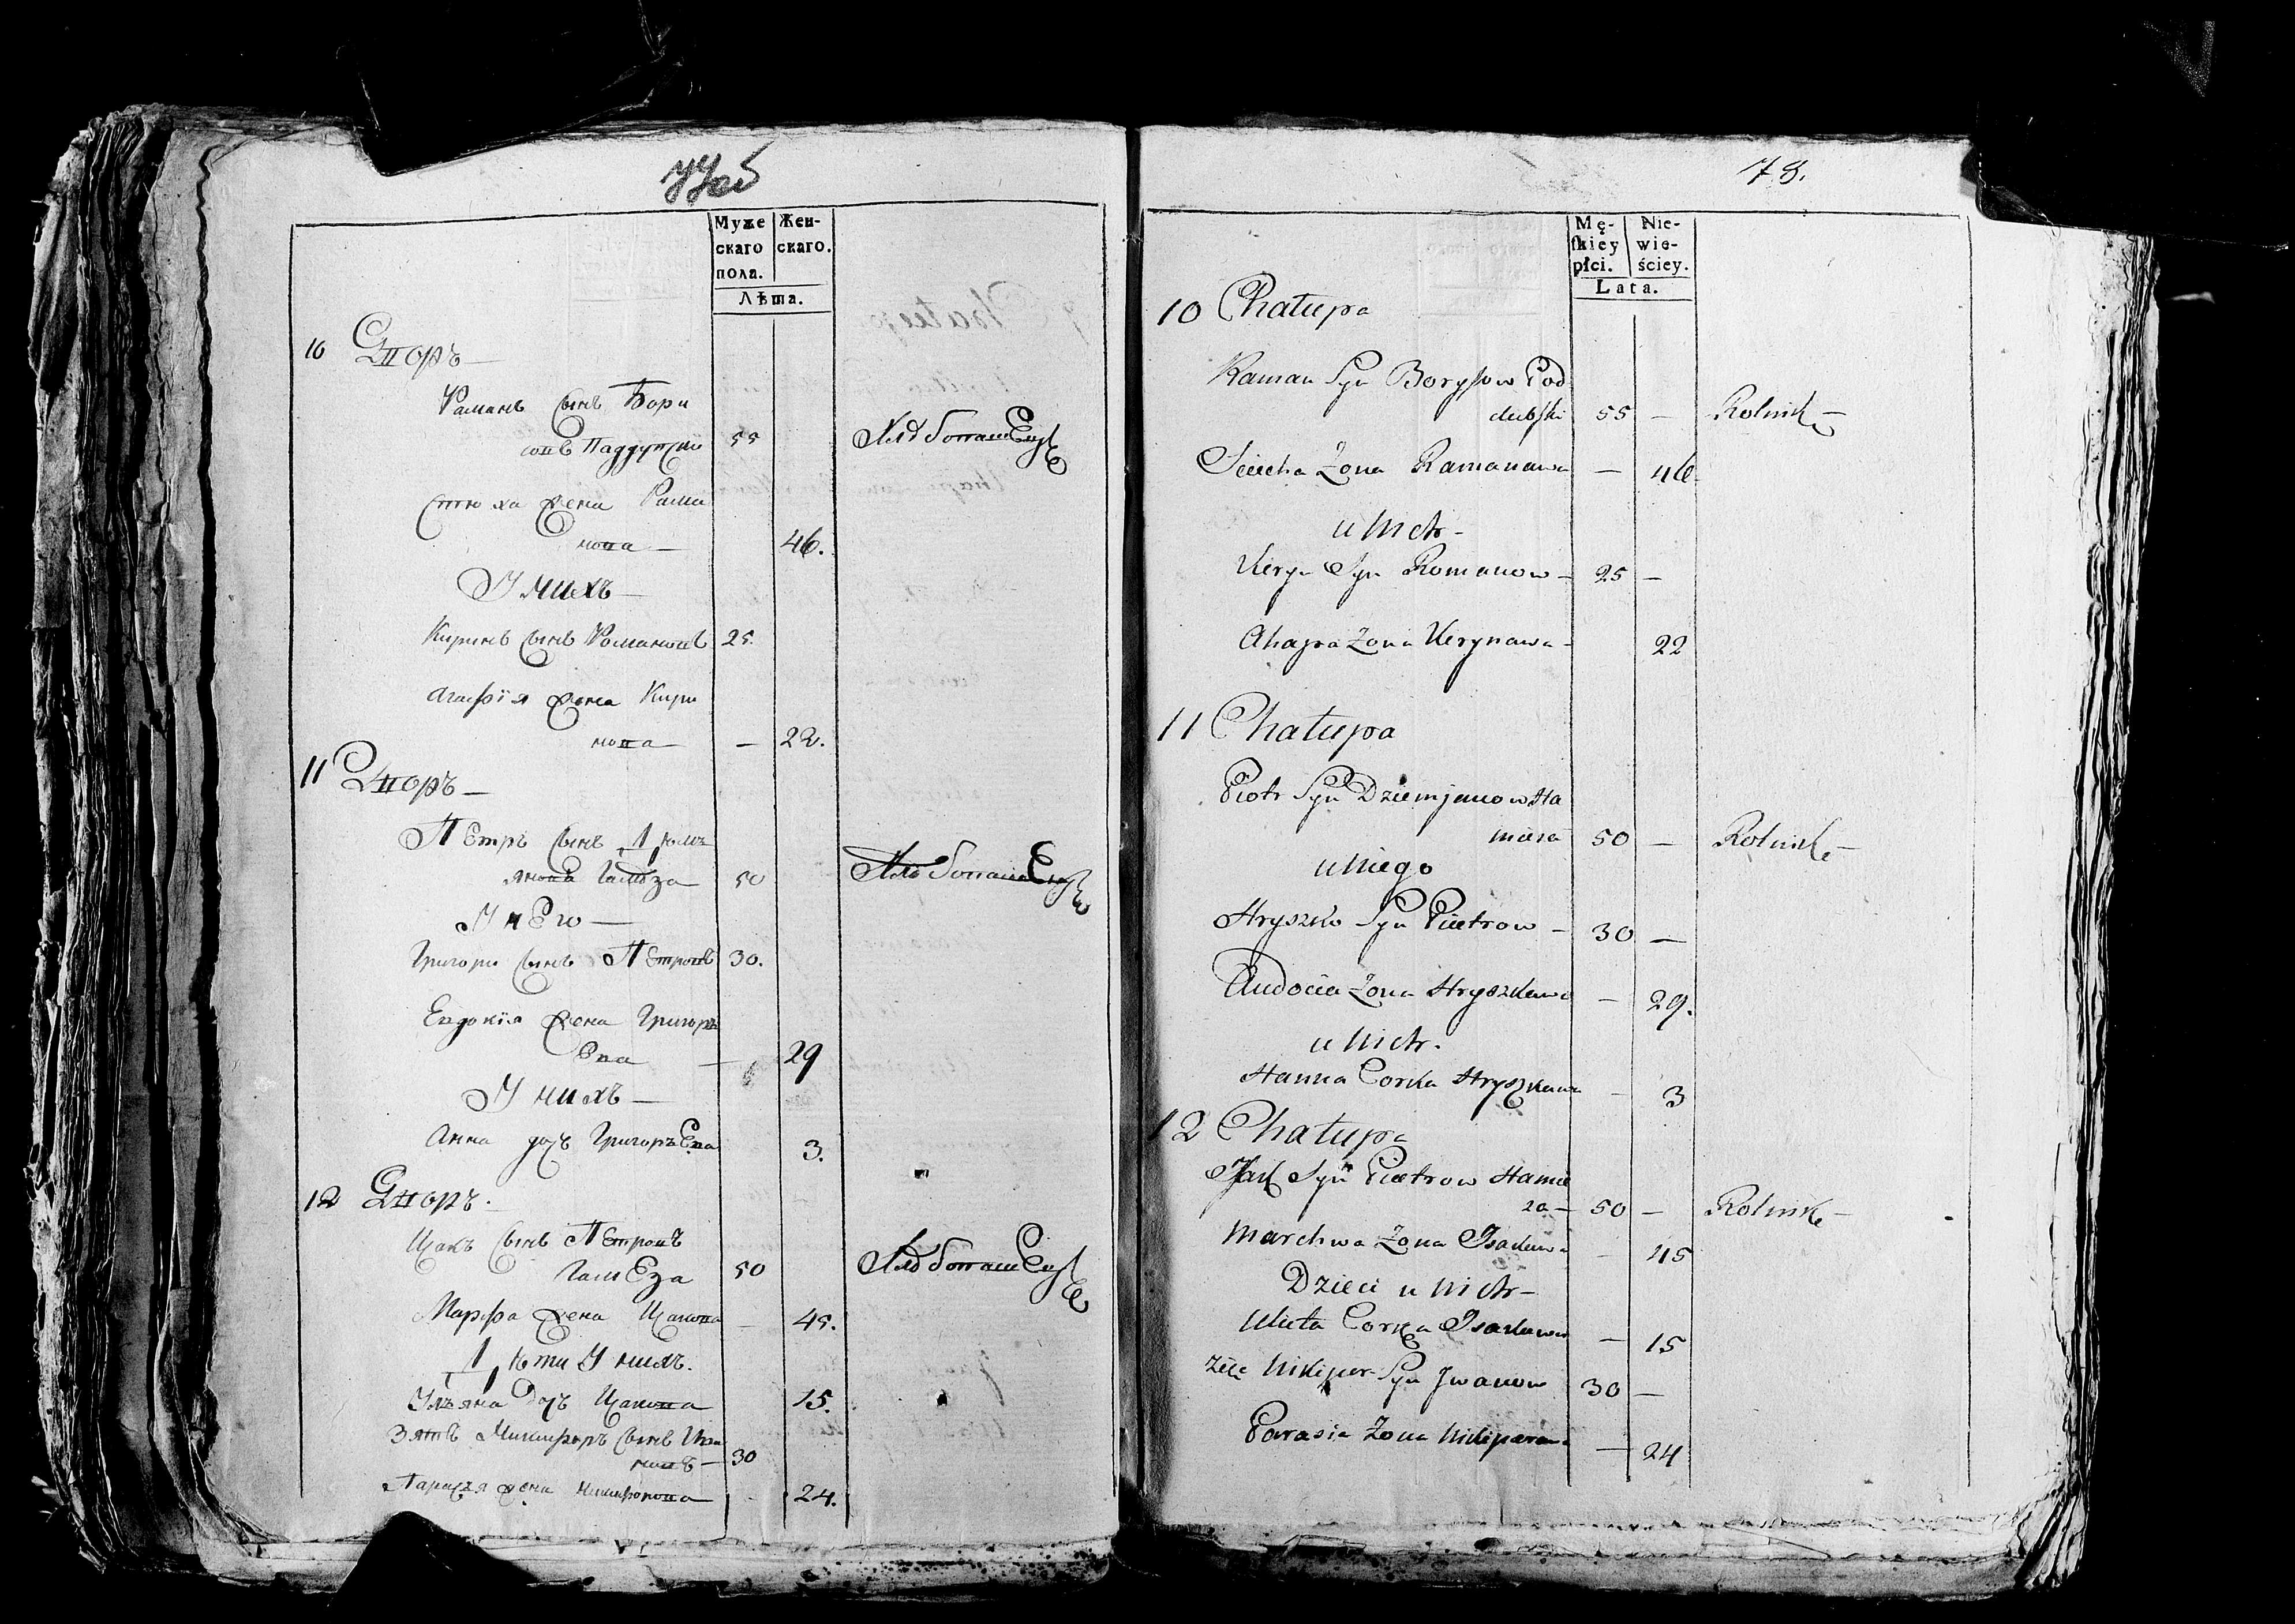 Муже
скаго
пола.
Жен-
скаго.
Лѣта.
10 Дворъ
Романъ сынъ Бори
совъ Паддупски 55 Хлебопашецъ
Стюха жена Рама
нова 46.
У нихъ
Киринъ сынъ Романовъ 25.
Агафія жена Кири
нова — 22.
11 Дворъ
Петръ сынъ Демь
янова Гамеза 50 Хлебопашецъ
У него
Григори сынъ Петровъ 30.
Евдокія жена Григорь
ева — 29
У нихъ
Анна дочь Григорьева 3.
12 Дворъ.
Исакъ сынъ Петровъ
Гамеза 50 Хлебопашецъ
Марфа жена Исакова — 45.
Дети У нихъ.
Ульяна дочь Исакова 15.
Зять Никифоръ сынъ Ива
новъ — 30
Парасья жена Никифорова 24.
78.
Mę-
skiey
płci.
Nie-
wie-
ściey.
Lata.
10 Chałupa
Raman Syn Borysow Pod
dubski 55 — Rolnik —
Sciucha Żona Ramanawa — 46
u Nich —
Kiryn Syn Romanow — 25 —
Ahapa Żona Kirynawa — 22
11 Chałupa
Piotr Syn Dziemjanow Ha
mieza 50 — Rolnik —
u Niego
Hryszko Syn Pietrow — 30 —
Audocia Żona Hryszkawa — 29.
u Nich.
Hanna Corka Hryszkawa — 3
12 Chałupa
Isak Syn Pietrow Hamie
za — 50 — Rolnik —
Marchwa Żona Isakawa — 45
Dzieci u Nich —
Ulieta Corka Isakawa — 15
Zięć Nikipor Syn Iwanow 30 —
Parasia Żona Nikiparawa — 24